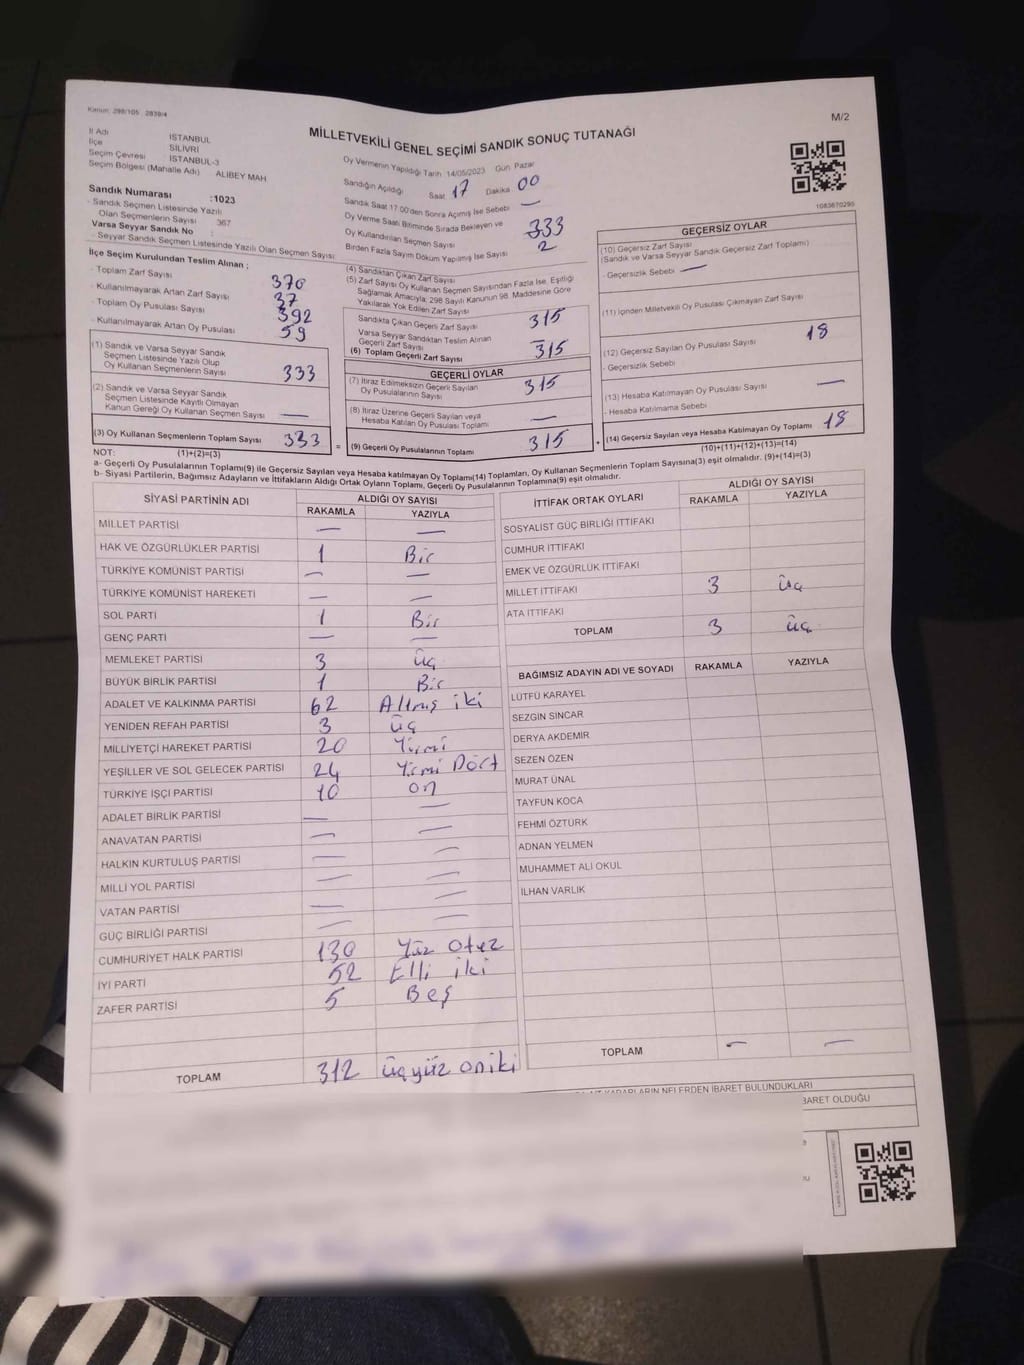 Kanun: 298/105 2839/4
M/2
MİLLETVEKİLİ GENEL SEÇİMİ SANDIK SONUÇ TUTANAĞI
İl Adı İSTANBUL
İlçe SİLİVRİ
Seçim Çevresi İSTANBUL-3
Seçim Bölgesi (Mahalle Adı) ALİBEY MAH
Sandık Numarası :1023
- Sandık Seçmen Listesinde Yazılı
Olan Seçmenlerin Sayısı 367
Varsa Seyyar Sandık No :
- Seyyar Sandık Seçmen Listesinde Yazılı Olan Seçmen Sayısı
Oy Vermenin Yapıldığı Tarih 14/05/2023 Gün Pazar
Sandığın Açıldığı Saat 17 Dakika 00
Sandık Saat 17.00'den Sonra Açılmış İse Sebebi —
Oy Verme Saati Bitiminde Sırada Bekleyen ve
Oy Kullandırılan Seçmen Sayısı 333
Birden Fazla Sayım Döküm Yapılmış İse Sayısı 2
1083670295
İlçe Seçim Kurulundan Teslim Alınan :
- Toplam Zarf Sayısı 370
- Kullanılmayarak Artan Zarf Sayısı 37
- Toplam Oy Pusulası Sayısı 392
- Kullanılmayarak Artan Oy Pusulası 59
(1) Sandık ve Varsa Seyyar Sandık
Seçmen Listesinde Yazılı Olup
Oy Kullanan Seçmenlerin Sayısı 333
(2) Sandık ve Varsa Seyyar Sandık
Seçmen Listesinde Kayıtlı Olmayan
Kanun Gereği Oy Kullanan Seçmen Sayısı —
(3) Oy Kullanan Seçmenlerin Toplam Sayısı 333
(1)+(2)=(3)
(4) Sandıktan Çıkan Zarf Sayısı
(5) Zarf Sayısı Oy Kullanan Seçmen Sayısından Fazla İse, Eşitliği
Sağlamak Amacıyla, 298 Sayılı Kanunun 98. Maddesine Göre
Yakılarak Yok Edilen Zarf Sayısı
Sandıkta Çıkan Geçerli Zarf Sayısı 315
Varsa Seyyar Sandıktan Teslim Alınan
Geçerli Zarf Sayısı —
(6) Toplam Geçerli Zarf Sayısı 315
GEÇERLİ OYLAR
(7) İtiraz Edilmeksizin Geçerli Sayılan
Oy Pusulasının Sayısı 315
(8) İtiraz Üzerine Geçerli Sayılan veya
Hesaba Katılan Oy Pusulası Toplamı —
= (9) Geçerli Oy Pusulalarının Toplamı 315
GEÇERSİZ OYLAR
(10) Geçersiz Zarf Sayısı
(Sandık ve Varsa Seyyar Sandık Geçersiz Zarf Toplamı)
- Geçersizlik Sebebi —
(11) İçinden Milletvekili Oy Pusulası Çıkmayan Zarf Sayısı
(12) Geçersiz Sayılan Oy Pusulası Sayısı 18
- Geçersizlik Sebebi
(13) Hesaba Katılmayan Oy Pusulası Sayısı —
- Hesaba Katılmama Sebebi
+ (14) Geçersiz Sayılan veya Hesaba Katılmayan Oy Toplamı 18
(10)+(11)+(12)+(13)=(14)
NOT:
a- Geçerli Oy Pusulalarının Toplamı(9) ile Geçersiz Sayılan veya Hesaba katılmayan Oy Toplamı(14) Toplamları, Oy Kullanan Seçmenlerin Toplam Sayısına(3) eşit olmalıdır. (9)+(14)=(3)
b- Siyasi Partilerin, Bağımsız Adayların ve İttifakların Aldığı Ortak Oyların Toplamı, Geçerli Oy Pusulalarının Toplamına(9) eşit olmalıdır.
SİYASİ PARTİNİN ADI ALDIĞI OY SAYISI
RAKAMLA YAZIYLA
MİLLET PARTİSİ — —
HAK VE ÖZGÜRLÜKLER PARTİSİ 1 Bir
TÜRKİYE KOMÜNİST PARTİSİ — —
TÜRKİYE KOMÜNİST HAREKETİ — —
SOL PARTİ 1 Bir
GENÇ PARTİ — —
MEMLEKET PARTİSİ 3 üç
BÜYÜK BİRLİK PARTİSİ 1 Bir
ADALET VE KALKINMA PARTİSİ 62 Altmış iki
YENİDEN REFAH PARTİSİ 3 üç
MİLLİYETÇİ HAREKET PARTİSİ 20 Yirmi
YEŞİLLER VE SOL GELECEK PARTİSİ 24 Yirmi Dört
TÜRKİYE İŞÇİ PARTİSİ 10 on
ADALET BİRLİK PARTİSİ — —
ANAVATAN PARTİSİ — —
HALKIN KURTULUŞ PARTİSİ — —
MİLLİ YOL PARTİSİ — —
VATAN PARTİSİ — —
GÜÇ BİRLİĞİ PARTİSİ — —
CUMHURİYET HALK PARTİSİ 130 Yüz otuz
İYİ PARTİ 52 Elli iki
ZAFER PARTİSİ 5 Beş
TOPLAM 312 üçyüz oniki
İTTİFAK ORTAK OYLARI ALDIĞI OY SAYISI
RAKAMLA YAZIYLA
SOSYALİST GÜÇ BİRLİĞİ İTTİFAKI
CUMHUR İTTİFAKI
EMEK VE ÖZGÜRLÜK İTTİFAKI
MİLLET İTTİFAKI 3 üç
ATA İTTİFAKI
TOPLAM 3 üç
BAĞIMSIZ ADAYIN ADI VE SOYADI RAKAMLA YAZIYLA
LÜTFÜ KARAYEL
SEZGİN SINCAR
DERYA AKDEMİR
SEZEN ÖZEN
MURAT ÜNAL
TAYFUN KOCA
FEHMİ ÖZTÜRK
ADNAN YELMEN
MUHAMMET ALİ OKUL
İLHAN VARLIK
TOPLAM — —
KARARLARIN NELERDEN İBARET BULUNDUKLARI
BARET OLDUĞU